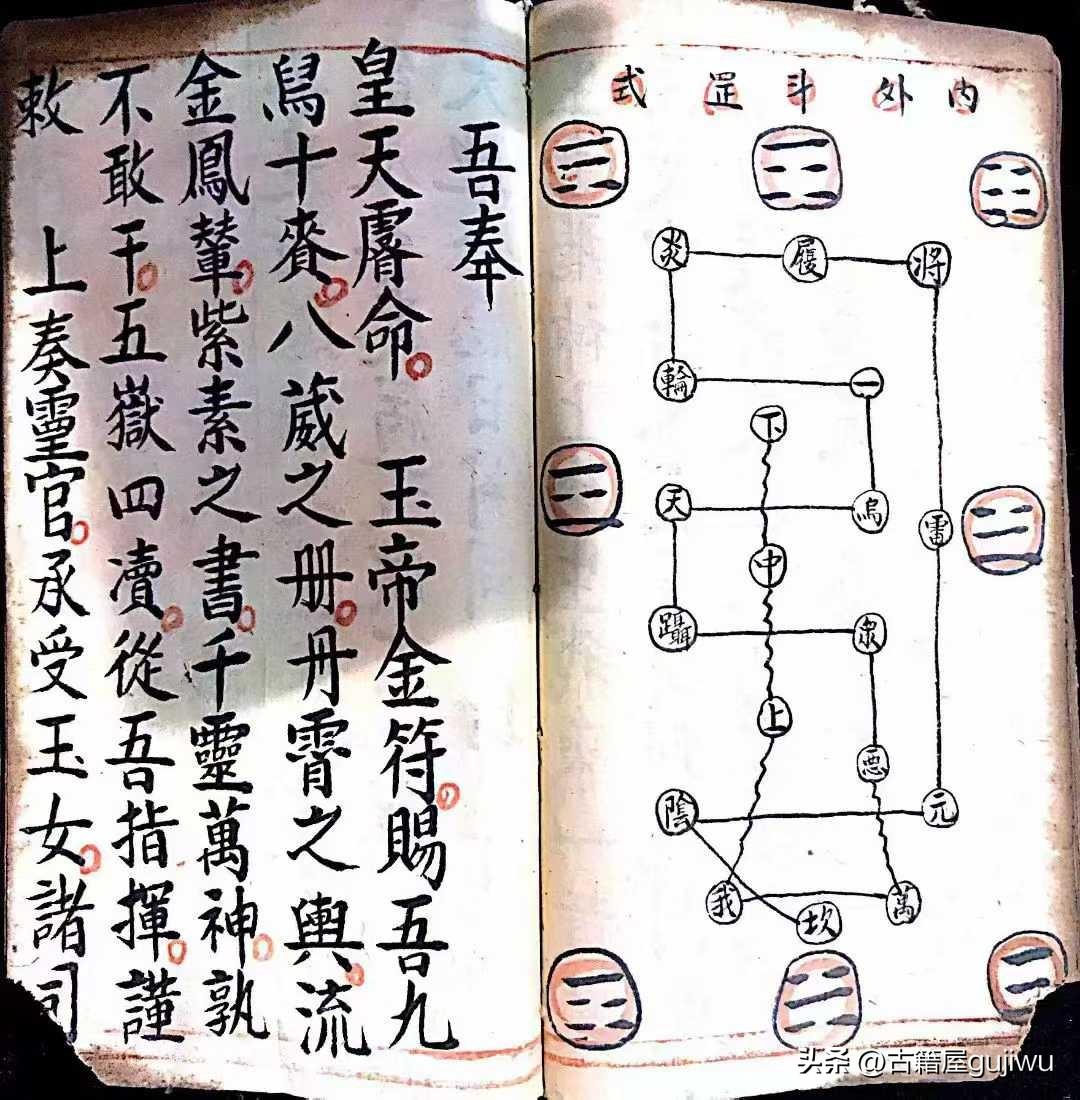 内外斗罡式
炎 履 将
輪 一
下
天 烏 雷
中
躡 衆
上
惡
陰 元
我 坎 萬
吾奉
皇天膺命。玉帝金符。賜吾九
舄十賚。八葳之册。丹霄之輿。流
金鳳輦。紫素之書。千靈萬神。孰
不敢干。五嶽四瀆。從吾指揮。謹
敕 上奏靈官。承受玉女。諸司
头条 @古籍屋gujiwu